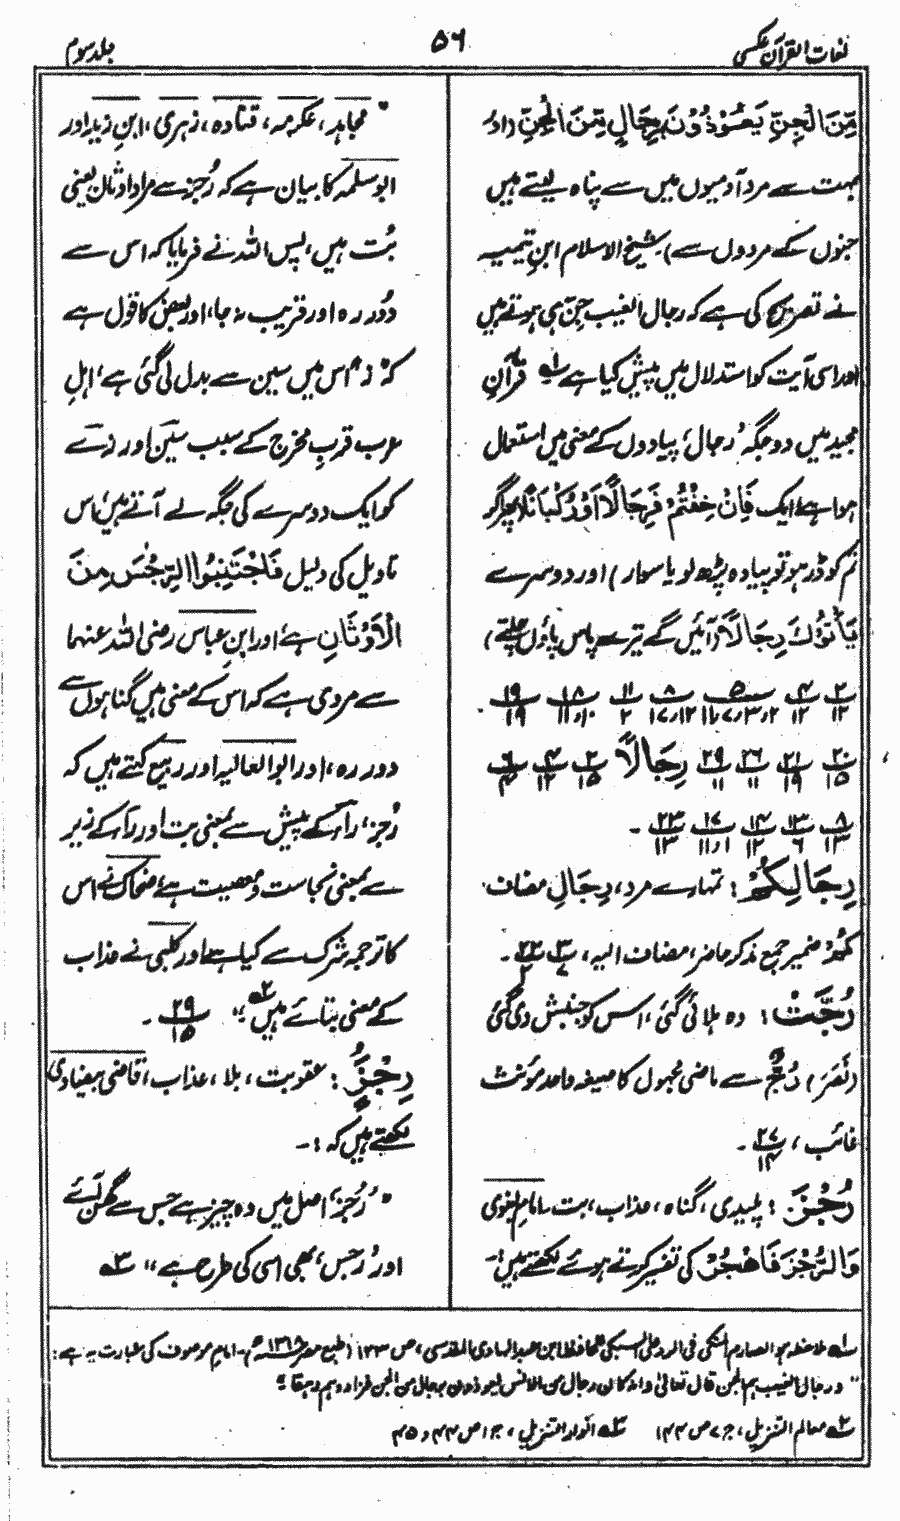 لغات القرآن عکسی
۵۶
جلد سوم
مِّنَ الْجِنِّ یَعُوْذُوْنَ بِرِجَالٍ مِّنَ الْجِنِّ (اور
بہت سے مرد آدمیوں میں سے پناہ لیتے ہیں
جنوں کے مردوں سے) شیخ الاسلام ابن تیمیہ
نے تصریح کی ہے کہ رجال الغیب جن ہی ہوتے ہیں
اور اسی آیت کو استدلال میں پیش کیا ہے لہ قرآن
مجید میں دو جگہ رِجال، پیادوں کے معنی میں استعمال
ہوا ہے ایک فَاِنْ خِفْتُمْ فَرِجَالًا اَوْ رُكْبَانًا (پھر اگر
تم کو ڈر ہو تو پیادہ پڑھ لو یا سوار) اور دوسرے
یَأْتُوْكَ رِجَالًا (آئیں گے تیرے پاس پاؤں چلتے)
۲/۱۲ ۴/۱۲ ۵/۲،۳،۷،۱۱ ۸/۱۲،۱۷ ۱۱/۲ ۱۸/۱۰،۱۱ ۱۹/۱۹
۲۰/۱۵ ۲۱/۱۹ ۲۶/۱۱ ۲۹/۱۱ رِجَالًا ۲/۱۵ ۴/۱۲ ۶/۴
۸/۱۳ ۱۳/۶ ۱۴/۱۲ ۱۷/۱،۱۱ ۲۳/۱۳ ۔
رِجَالِكُمْ : تمہارے مرد، رِجَالِ مضاف
كُمْ ضمیر جمع مذکر حاضر، مضاف الیہ، ۳/۷ ۲۲/۲ ۔
رُجَّتْ : وہ ہلائی گئی، اس کو جنبش دی گئی
(نَصَرَ) رَجٌّ سے ماضی مجہول کا صیغہ واحد مؤنث
غائب، ۲۷/۱۴ ۔
رُجْزَ : پلیدی، گناہ، عذاب، بت۔ امام بغوی
وَالرُّجْزَ فَاهْجُرْ کی تفسیر کرتے ہوئے لکھتے ہیں:۔
” مجاہد، عکرمہ، قتادہ، زہری، ابن زید اور
ابو سلمہ کا بیان ہے کہ رُجز سے مراد اوثان یعنی
بُت ہیں، پس اللہ نے فرمایا کہ اس سے
دُور رہ اور قریب نہ جا، اور بعض کا قول ہے
کہ ”ز“ اس میں سین سے بدل لی گئی ہے، اہلِ
عرب قربِ مخرج کے سبب سین اور زے
کو ایک دوسرے کی جگہ لے آتے ہیں، اس
تاویل کی دلیل فَاجْتَنِبُوا الرِّجْسَ مِنَ
الْاَوْثَانِ ہے، اور ابن عباس رضی اللہ عنہما
سے مروی ہے کہ اس کے معنی ہیں گناہوں سے
دور رہ، اور ابو العالیہ اور ربیع کہتے ہیں کہ
رُجز، راء کے پیش سے بمعنی بت اور راء کے زیر
سے بمعنی نجاست و معصیت ہے، ضحاک نے اس
کا ترجمہ شرک سے کیا ہے اور کلبی نے عذاب
کے معنی بتائے ہیں ۲ہ“ ۲۹/۱۵ ۔
رِجْزٌ : عقوبت، بلا، عذاب، قاضی بیضاوی
لکھتے ہیں کہ :۔
” رُجز، اصل میں وہ چیز ہے جس سے گھن آئے
اور رُجس، بھی اسی کی طرح ہے “ ۳ہ
لہ ملاحظہ ہو الصارم المنکی فی الرد علی السبکی للحافظ ابن عبد الہادی المقدسی، ص ۱۴۳ (طبع مصر ۱۳۱۸ھ)۔ امام موصوف کی عبارت یہ ہے:
” و رجال الغیب ہم الجن قال تعالیٰ وانہ کان رجال من الانس یعوذون برجال من الجن فزادوہم رہقا “
۲ہ معالم التنزیل، ج ۷ ص ۱۴۴ ۳ہ انوار التنزیل، ج ۱ ص ۴۴ و ۴۵